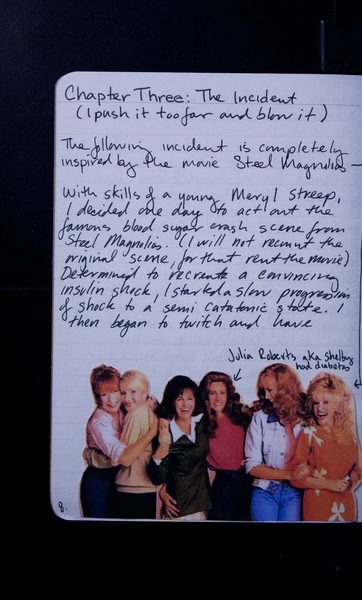 Chapter Three: The Incident
(I push it too far and blow it)
The following incident is completely
inspired by the movie Steel Magnolias—
With skills of a young Meryl Streep,
I decided one day to act out the
famous blood sugar crash scene from
Steel Magnolias. (I will not recount the
original scene, for that rent the movie)
Determined to recreate a convincing
insulin shock, I started a slow progression
of shock to a semi catatonic state. I
then began to twitch and have
Julia Roberts aka Shelby
had diabetes
8.